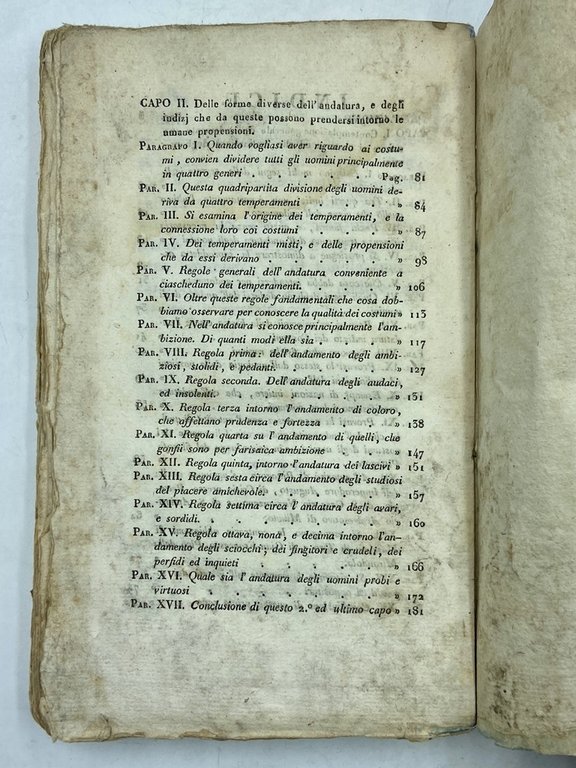 CAPO II. Delle forme diverse dell'andatura, e degli
indizj che da queste possono prendersi intorno le
umane propensioni.
PARAGRAFO I. Quando vogliasi aver riguardo ai costu-
mi, convien dividere tutti gli uomini principalmente
in quattro generi . . . . . Pag. 81
PAR. II. Questa quadripartita divisione degli uomini de-
riva da quattro temperamenti . . . » 84
PAR. III. Si esamina l'origine dei temperamenti, e la
connessione loro coi costumi . . . » 87
PAR. IV. Dei temperamenti misti, e delle propensioni
che da essi derivano . . . . . » 98
PAR. V. Regole generali dell'andatura conveniente a
ciascheduno dei temperamenti. . . . » 106
PAR. VI. Oltre queste regole fondamentali che cosa dob-
biamo osservare per conoscere la qualità dei costumi » 113
PAR. VII. Nell'andatura si conosce principalmente l'am-
bizione. Di quanti modi ella sia . . . » 117
PAR. VIII. Regola prima: dell'andamento degli ambi-
ziosi, stolidi, e pedanti. . . . . » 127
PAR. IX. Regola seconda. Dell'andatura degli audaci,
ed insolenti. . . . . . . » 131
PAR. X. Regola terza intorno l'andamento di coloro,
che affettano prudenza e fortezza . . . » 138
PAR. XI. Regola quarta su l'andamento di quelli, che
gonfii sono per farisaica ambizione . . » 147
PAR. XII. Regola quinta, intorno l'andatura dei lascivi » 151
PAR. XIII. Regola sesta circa l'andamento degli studiosi
del piacere amichevole. . . . . » 157
PAR. XIV. Regola settima circa l'andatura degli avari,
e sordidi. . . . . . . . » 160
PAR. XV. Regola ottava, nona, e decima intorno l'an-
damento degli sciocchi; dei fingitori e crudeli, dei
perfidi ed inquieti . . . . . » 166
PAR. XVI. Quale sia l'andatura degli uomini probi e
virtuosi . . . . . . . » 172
PAR. XVII. Conclusione di questo 2.º ed ultimo capo » 181